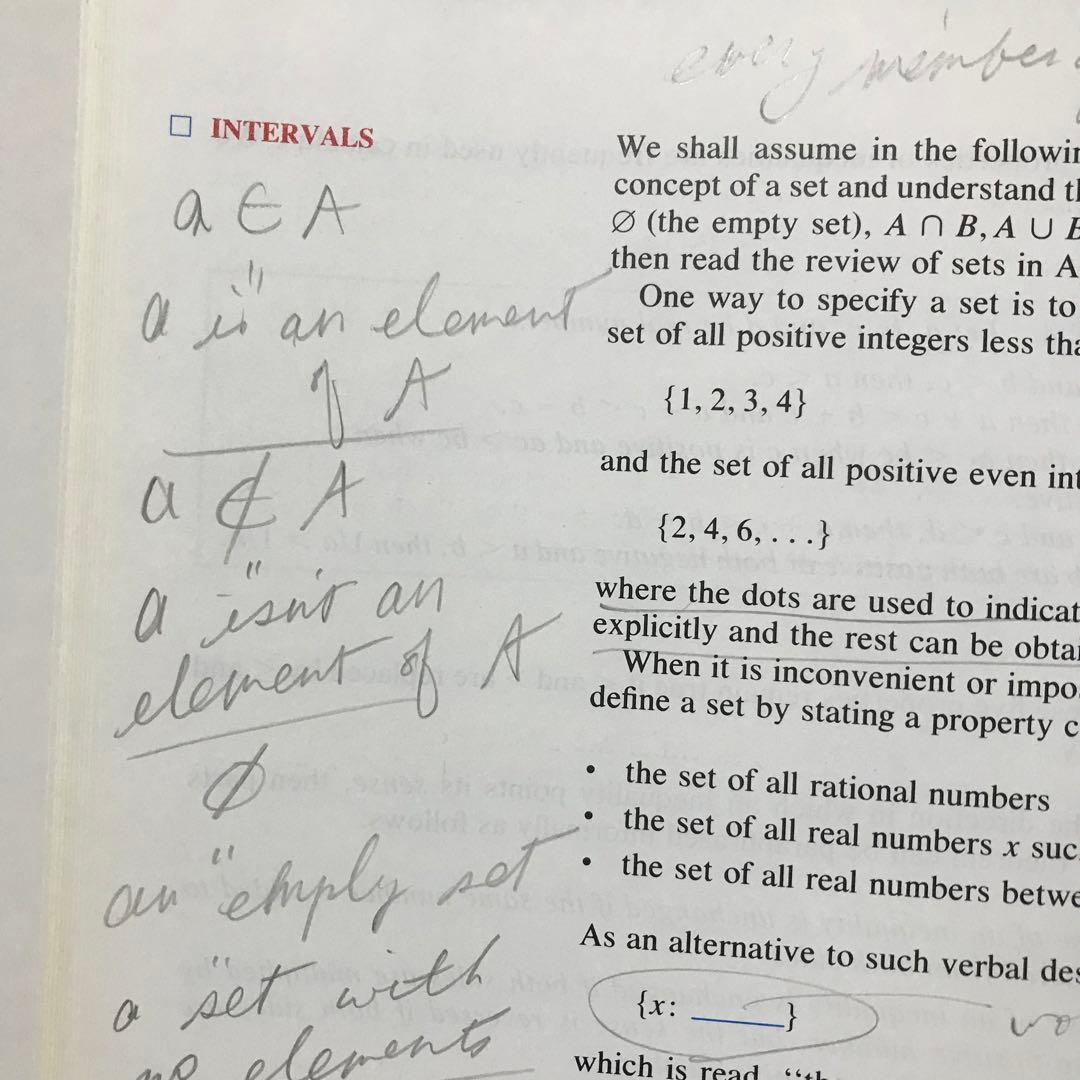 every member
INTERVALS
a ∈ A
a is an element
of A
a ∉ A
a isn't an
element of A
∅
an empty set
a set with
no elements
We shall assume in the followin
concept of a set and understand th
∅ (the empty set), A ∩ B, A ∪ B
then read the review of sets in A
One way to specify a set is to
set of all positive integers less tha
{1, 2, 3, 4}
and the set of all positive even int
{2, 4, 6, . . .}
where the dots are used to indicat
explicitly and the rest can be obtai
When it is inconvenient or impos
define a set by stating a property c
• the set of all rational numbers
• the set of all real numbers x suc
• the set of all real numbers betwe
As an alternative to such verbal des
{x: ______}
which is read, “th